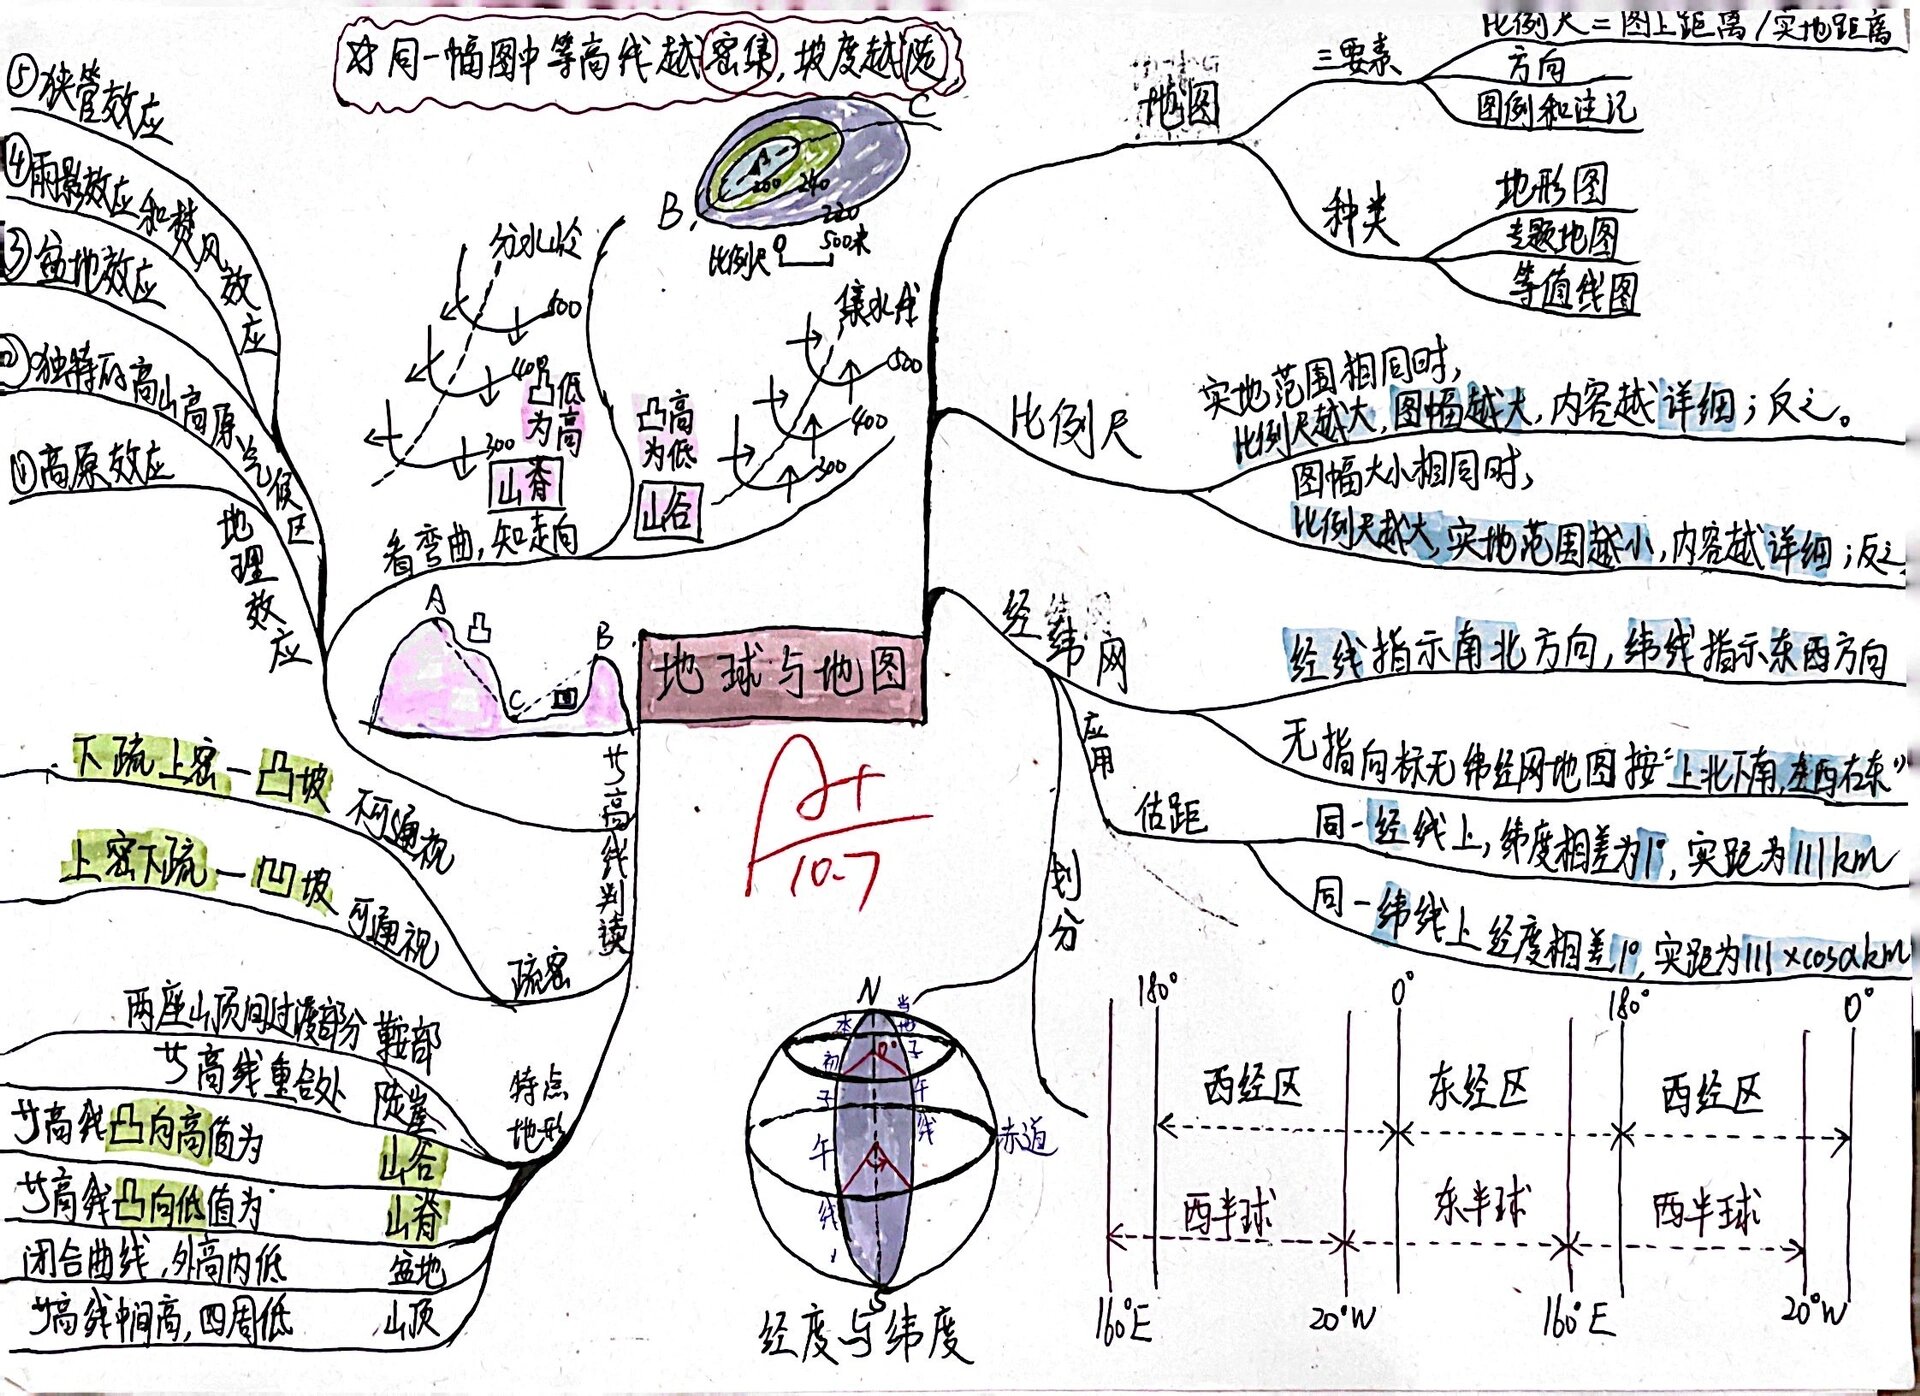 ☆同一幅图中等高线越密集,坡度越陡
⑤狭管效应
④雨影效应和焚风效应
③盆地效应
②独特的高山高原气候区
①高原效应
地理效应
分水岭
500
400
300
凸低为高
山脊
看弯曲,知走向
A
260
240
220
B
C
比例尺 0 500米
集水线
500
400
300
凸高为低
山谷
A
凸
B
C
凹
地球与地图
A+
10.7
等高线判读
下疏上密—凸坡 不可通视
上密下疏—凹坡 可通视
疏密
特点地形
两座山顶间过渡部分 鞍部
等高线重合处 陡崖
等高线凸向高值为 山谷
等高线凸向低值为 山脊
闭合曲线,外高内低 盆地
等高线中间高,四周低 山顶
地图
三要素
比例尺=图上距离/实地距离
方向
图例和注记
种类
地形图
专题地图
等值线图
比例尺
实地范围相同时,
比例尺越大,图幅越大,内容越详细;反之。
图幅大小相同时,
比例尺越大,实地范围越小,内容越详细;反之
经纬网
经线指示南北方向,纬线指示东西方向
无指向标无纬经网地图按“上北下南,左西右东”
应用
估距
同一经线上,纬度相差为1°,实距为111km
同一纬线上经度相差1°,实距为111×cosαkm
划分
N
本初子午线
当地子午线
赤道
S
经度与纬度
180° 0° 180° 0°
西经区 东经区 西经区
西半球 东半球 西半球
160°E 20°W 160°E 20°W